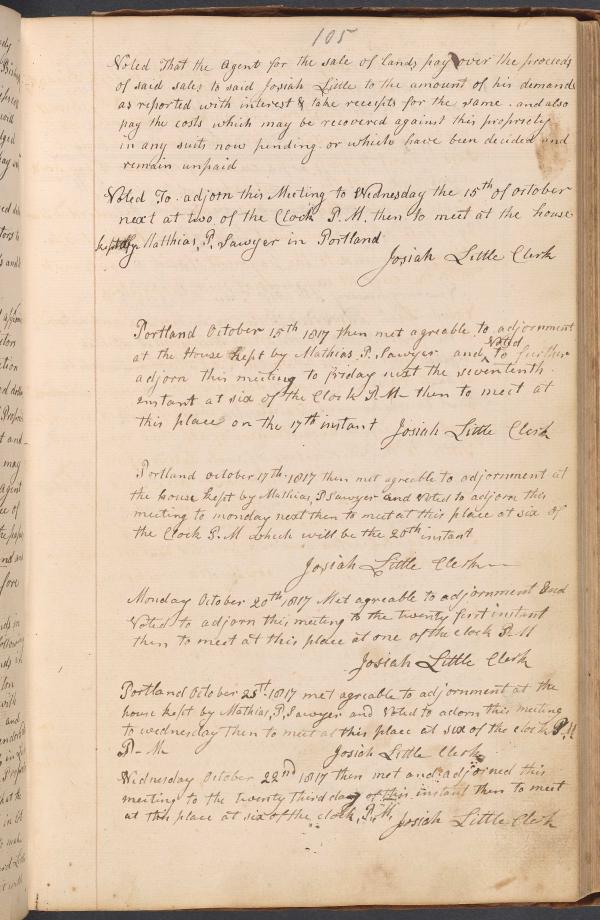 105
Voted That the Agent for the sale of lands pay over the proceeds
of said sales to said Josiah Little to the amount of his demands
as reported with interest & take receipts for the same. and also
pay the costs which may be recovered against this propriety
in any suits now pending or which have been decided and
remain unpaid
Voted To adjorn this Meeting to Wednesday the 15th of October
next at two of the Clock P. M. then to meet at the house
kept by Matthias, P. Sawyer in Portland
Josiah Little Clerk
Portland October 15th 1817 then met agreable to adjornment
at the House kept by Mathias P. Sawyer and Voted to further
adjorn this meeting to friday next the seventeenth
instant at six of the Clock P.M- then to meet at
this place on the 17th instant Josiah Little Clerk
Portland october 17th 1817 then met agreable to adjornment at
the house kept by Mathias, P Sawyer and Voted to adjorn this
meeting to monday next then to meet at this place at six of
the Clock P. M which will be the 20th instant
Josiah Little Clerk
Monday October 20th 1817 Met agreable to adjornment and
Voted to adjorn this meeting to the twenty first instant
then to meet at this place at one of the clock P. M
Josiah Little Clerk
Portland October 21st 1817 met agreable to adjornment at the
house kept by Mathias, P, Sawyer and Voted to adorn this meeting
to wednesday then to meet at this place at six of the clock P. M
P- M-
Josiah Little Clerk
Wednesday October 22nd 1817 then met and adjoined this
meeting to the twenty third day of this instant then to meet
at this place at six of the clock, P. M, Josiah Little Clerk